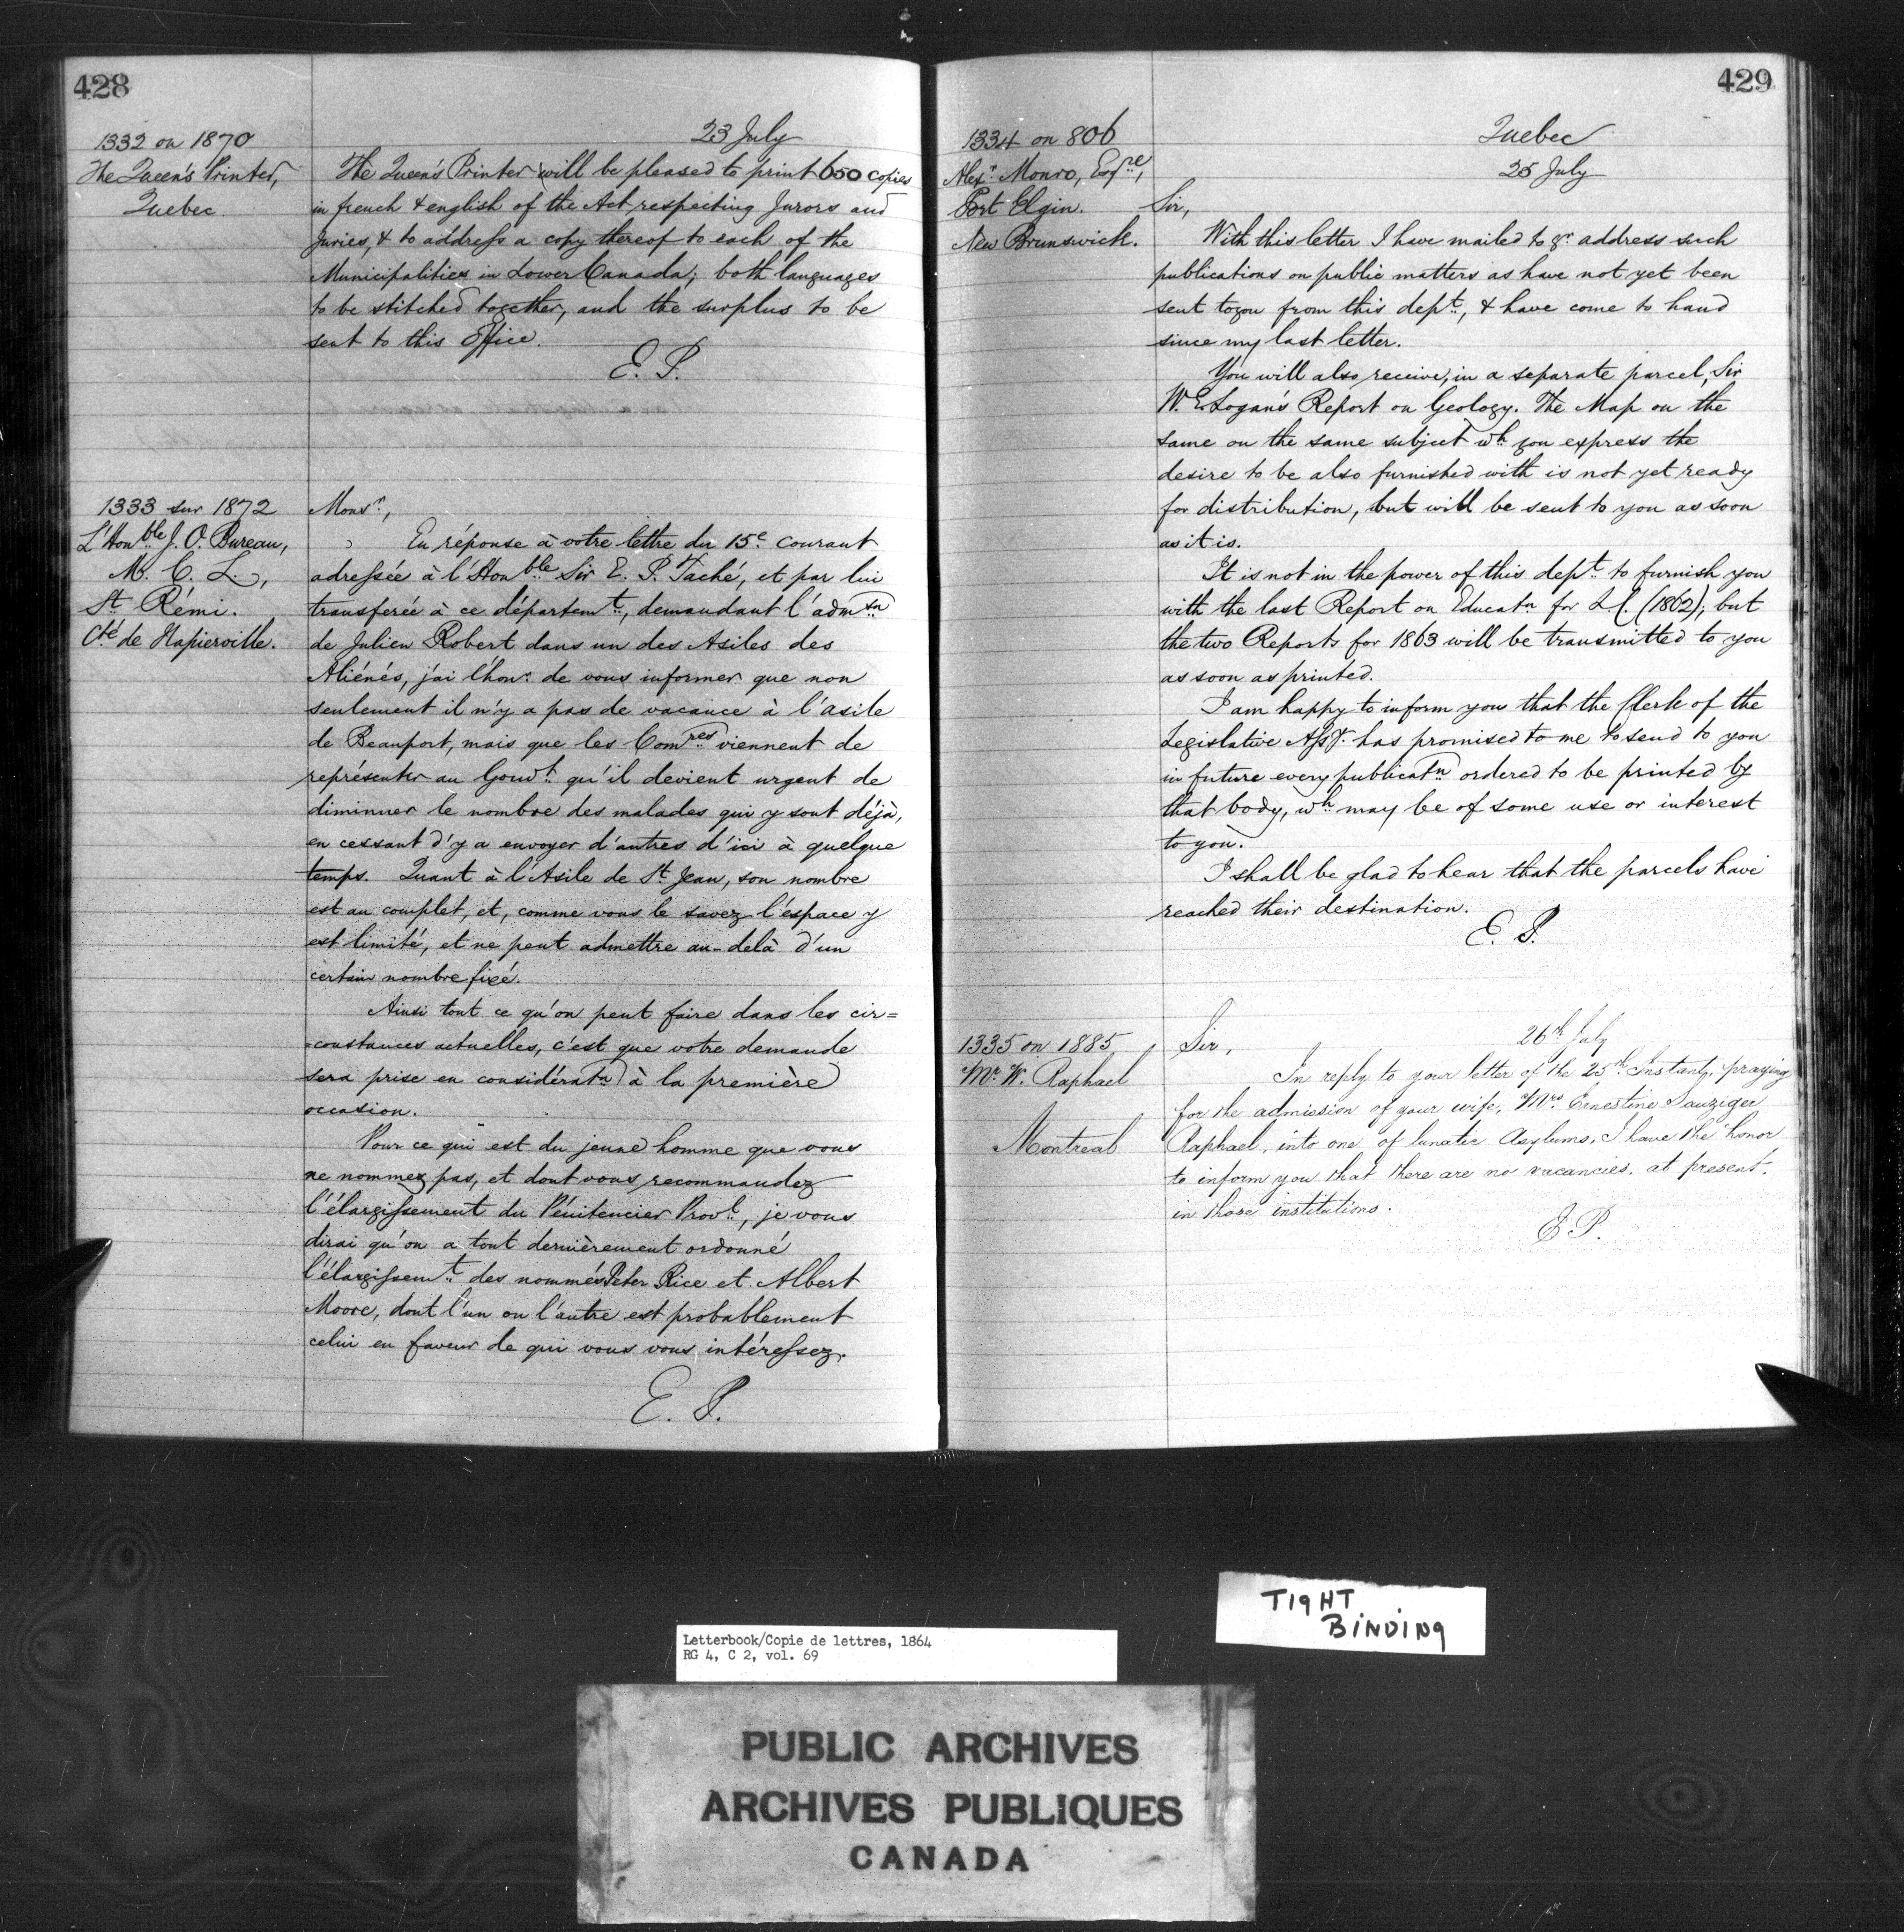 428
1332 on 1870
The Queen's Printer,
Quebec.
23 July
The Queen's Printer will be pleased to print 650 copies
in french & english of the Act respecting Jurors and
Juries, & to address a copy thereof to each of the
Municipalities in Lower Canada; both languages
to be stitched together, and the surplus to be
sent to this Office.
E. P.
1333 sur 1872
L'Honble J. O. Bureau,
M. C. L.,
St Rémi.
Cté de Napierville.
Monsr,
En réponse à votre lettre du 15e courant
adressée à l'Honble Sir E. P. Taché, et par lui
transferée à ce départemt, demandant l'admson
de Julien Robert dans un des Asiles des
Aliénés, j'ai l'honr de vous informer que non
seulement il n'y a pas de vacance à l'asile
de Beauport, mais que les Comres viennent de
représenter au Gouvt qu'il devient urgent de
diminuer le nombre des malades qui y sont déjà,
en cessant d'y a envoyer d'autres d'ici à quelque
temps. Quant à l'Asile de St Jean, son nombre
est au complet, et, comme vous le savez l'éspace y
est limité, et ne peut admettre au-delà d'un
certain nombre fixé.
Ainsi tout ce qu'on peut faire dans les cir=
=constances actuelles, c'est que votre demande
sera prise en considératn à la première
occasion.
Pour ce qui est du jeune homme que vous
ne nommez pas, et dont vous recommandez
l'élargissement du Pénitencier Provl, je vous
dirai qu'on a tout dernièrement ordonné
l'élargissemt des nommés Peter Rice et Albert
Moore, dont l'un ou l'autre est probablement
celui en faveur de qui vous vous intéressez.
E. P.
429
1334 on 806
Alexr Monro, Esqre,
Port Elgin.
New Brunswick.
Quebec
25 July
Sir,
With this letter I have mailed to yr address such
publications on public matters as have not yet been
sent to you from this dept, & have come to hand
since my last letter.
You will also receive, in a separate parcel, Sir
W. E. Logan's Report on Geology. The Map on the
same on the same subject wh you express the
desire to be also furnished with is not yet ready
for distribution, but will be sent to you as soon
as it is.
It is not in the power of this dept to furnish you
with the last Report on Educatn for L C. (1862); but
the two Reports for 1863 will be transmitted to you
as soon as printed.
I am happy to inform you that the Clerk of the
Legislative Assy has promised to me to send to you
in future every publicatn ordered to be printed by
that body, wh may be of some use or interest
to you.
I shall be glad to hear that the parcels have
reached their destination.
E. P.
1335 on 1885
Mr W. Raphael
Montreal
26th July
Sir,
In reply to your letter of the 25th Instant, praying
for the admission of your wife, Mrs Ernestine Danziger
Raphael, into one of lunatic Asylums, I have the honor
to inform you that there are no vacancies, at present,
in those institutions.
E P.
TIGHT
BINDING
Letterbook/Copie de lettres, 1864
RG 4, C 2, vol. 69
PUBLIC ARCHIVES
ARCHIVES PUBLIQUES
CANADA